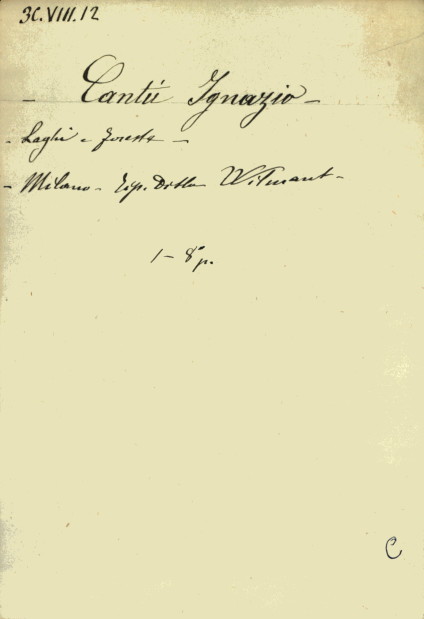 3C.VIII.12
- Cantù Ignazio -
- Laghi e foreste -
- Milano - Tip. Ditta Wilmant -
1 - 8° p.
C